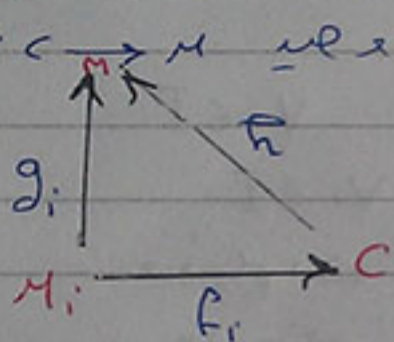 C → M
M
g_i
h̄
M_i
C
f_i